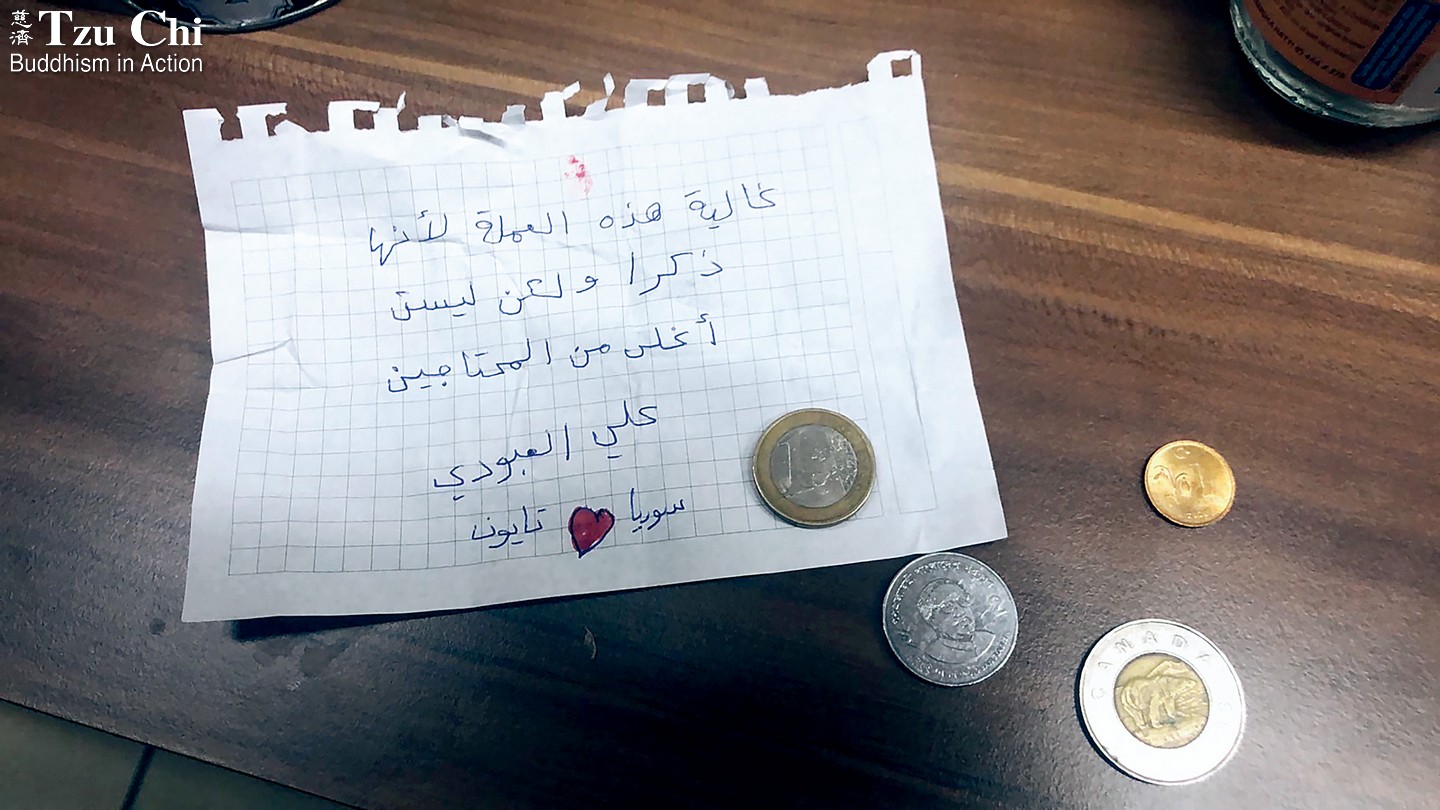 慈濟 Tzu Chi
Buddhism in Action
غالية هذه العملة لأنها
ذكرا ولكن ليست
أغلى من المحتاجين
علي العبودي
سوريا ❤ تايون
1
CANADA